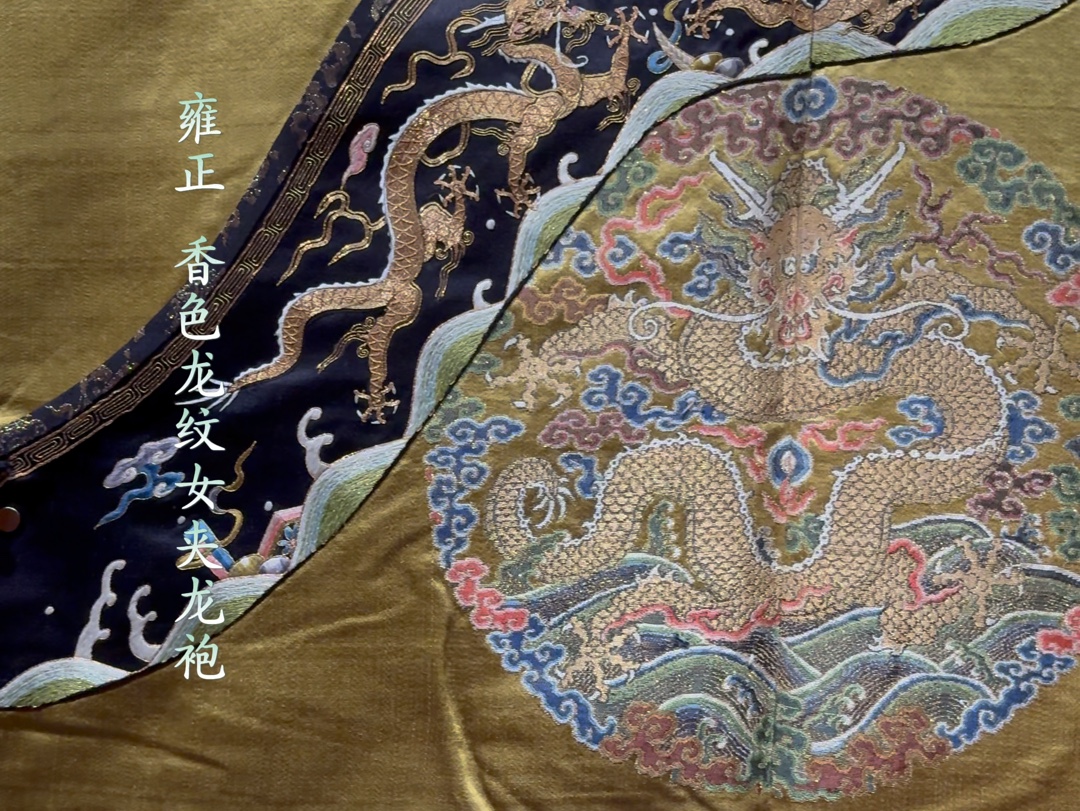 雍正 香色龙纹女夹龙袍